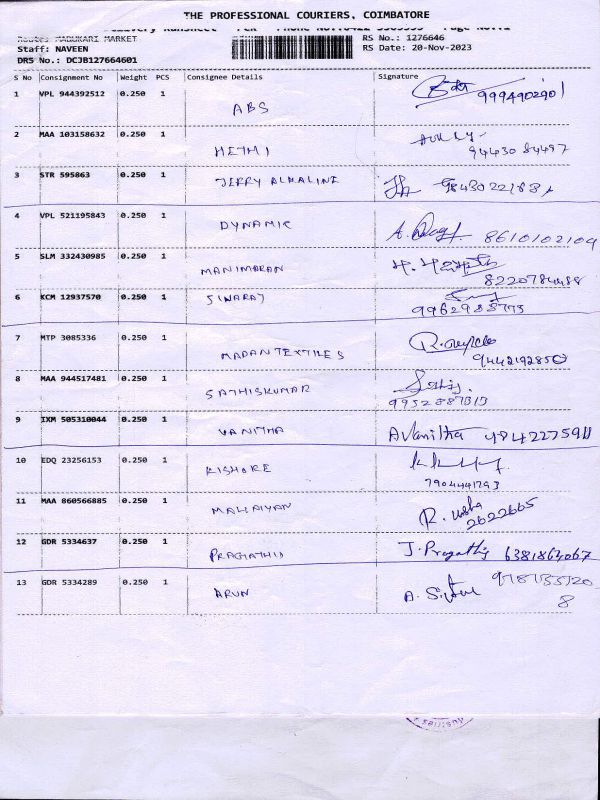 THE PROFESSIONAL COURIERS, COIMBATORE
Delivery Runsheet
Route: MADUKARI MARKET
RS No.: 1276646
Staff: NAVEEN
RS Date: 20-Nov-2023
DRS No.: DCJB127664601
S No Consignment No Weight PCS Consignee Details Signature
1 VPL 944392512 0.250 1 ABS 9994902901
2 MAA 103158632 0.250 1 HETHI 9443084497
3 STR 595863 0.250 1 JERRY ALKALINE
4 VPL 521195843 0.250 1 DYNAMIC 8610102109
5 SLM 332430985 0.250 1 MANIMARAN 8220784488
6 KCM 12937570 0.250 1 SIVARAJ
7 MTP 3085336 0.250 1 MADAN TEXTILES 9442192850
8 MAA 944517481 0.250 1 SATHISKUMAR
9 IXM 505310044 0.250 1 VANITHA A Vanitha
10 EDQ 23256153 0.250 1 KISHORE 7904441793
11 MAA 860566885 0.250 1 MALIAIYAN R. usha 2622665
12 GDR 5334637 0.250 1 PRAGATHIS J. Pragathis 6381863067
13 GDR 5334289 0.250 1 ARUN